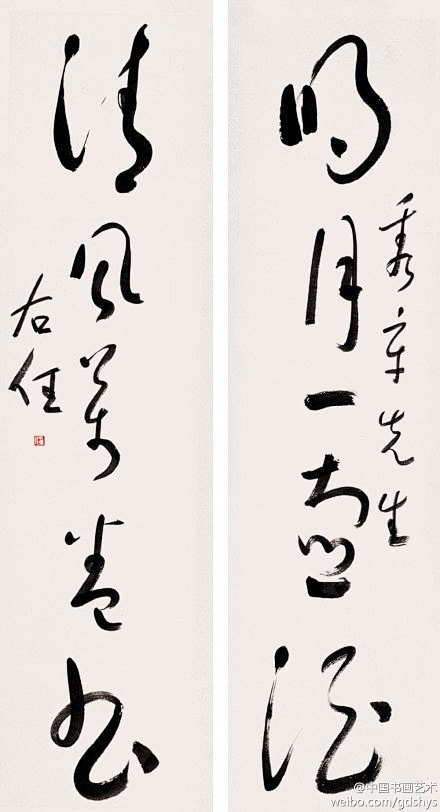 明月一壺酒
先生
清風萬卷書
右任
@中国书画艺术
weibo.com/gdshys